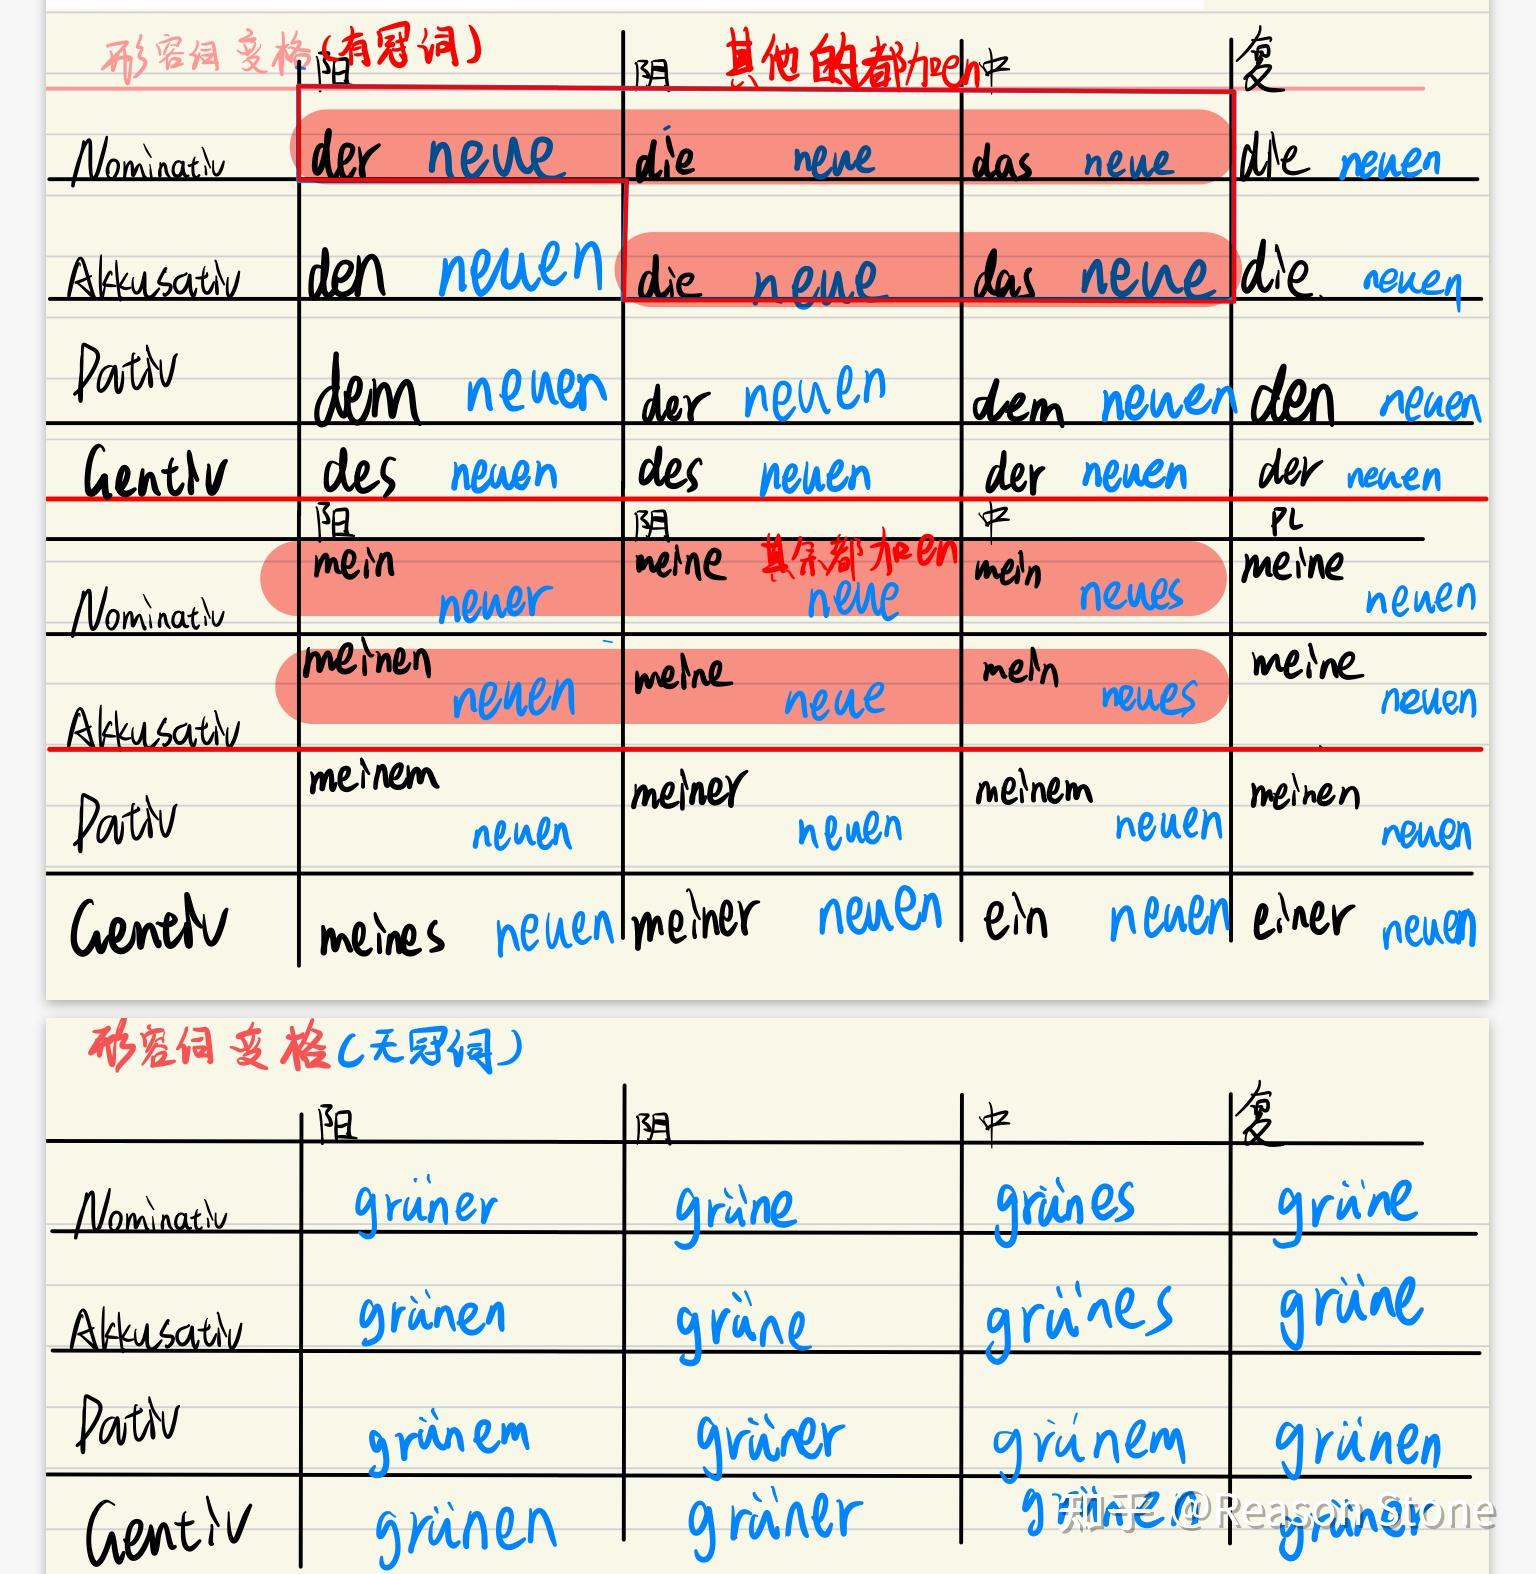 形容词变格(有冠词) 其他的都加en
阳 阴 中 复
Nominativ der neue die neue das neue die neuen
Akkusativ den neuen die neue das neue die neuen
Dativ dem neuen der neuen dem neuen den neuen
Gentiv des neuen des neuen der neuen der neuen
阳 阴 中 PL
其余都加en
Nominativ mein neuer meine neue mein neues meine neuen
Akkusativ meinen neuen meine neue mein neues meine neuen
Dativ meinem neuen meiner neuen meinem neuen meinen neuen
Gentiv meines neuen meiner neuen ein neuen einer neuen
形容词变格(无冠词)
阳 阴 中 复
Nominativ grüner grüne grünes grüne
Akkusativ grünen grüne grünes grüne
Dativ grünem grüner grünem grünen
Gentiv grünen grüner grünen grüner
知乎 @Reason Stone